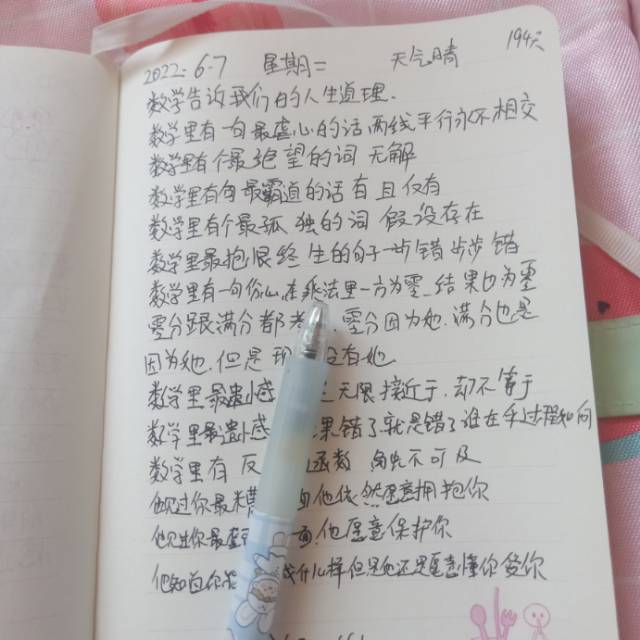 194天
2022. 6.7 星期二 天气晴
数学告诉我们的人生道理.
数学里有一句最虐心的话 两线平行永不相交
数学里有个最绝望的词 无解
数学里有句最霸道的话 有且仅有
数学里有个最孤独的词 假设存在
数学里最抱恨终生的句子一步错步步错
数学里有一句伤心在乘法里一方为零 结果也为零
零分跟满分都 零分因为她. 满分也是
因为她. 但是 没有她
数学里最遗憾 无限接近于. 却不等于
数学里最遗憾 果错了就是错了谁在乎过程如何
数学里有 反 函数 不可及
他见过你最糟 他依然愿意拥抱你
他见过你最 面他愿意保护你
他知道你 什么样但是他还是愿意懂你爱你